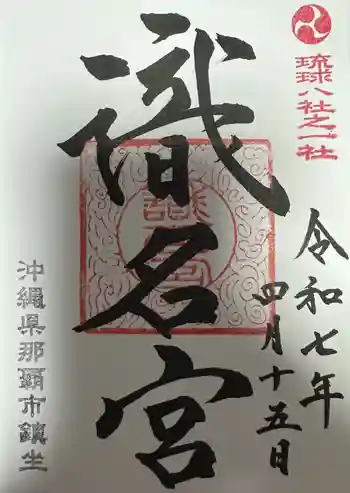 琉球八社之一社
識名宮
令和七年
四月十五日
沖縄県那覇市鎮坐